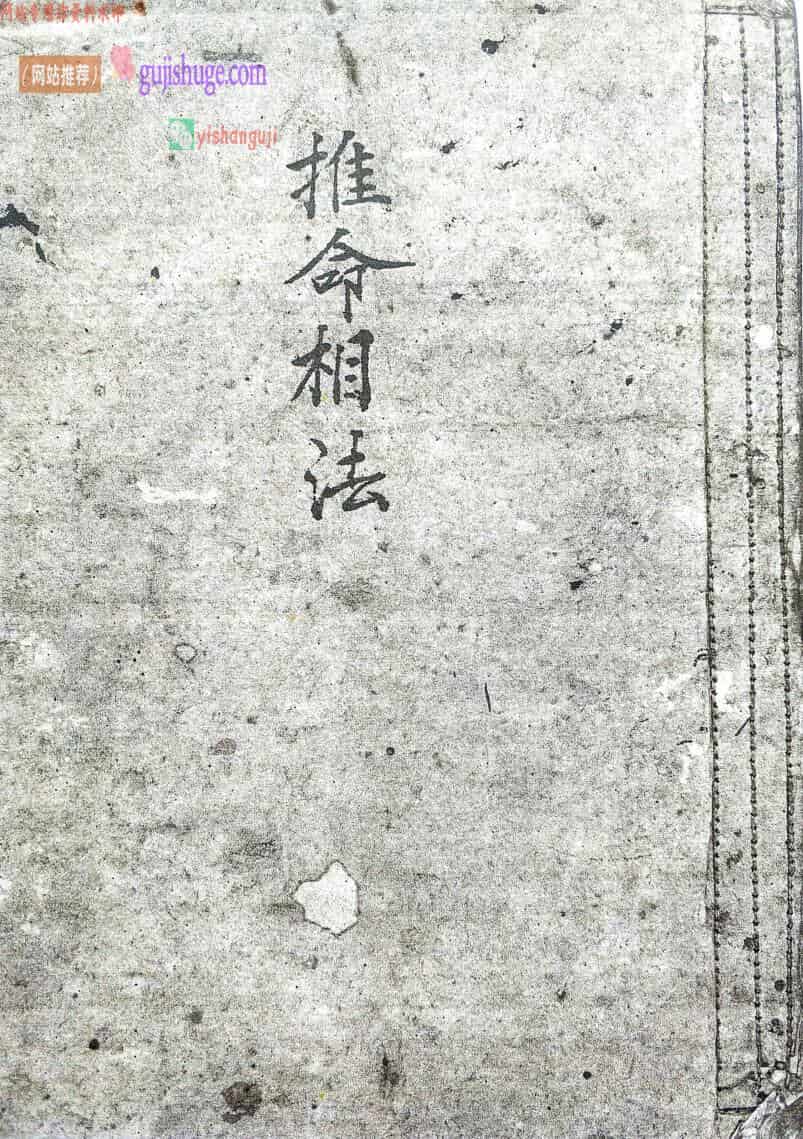 （网站推荐）
gujishuge.com
yishanguji
推命相法